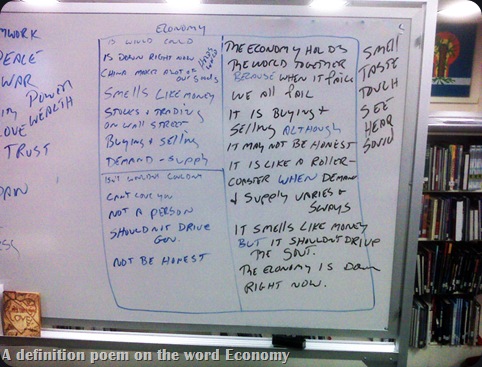 MWORK
PEACE
WAR
POWER
LOVE WEALTH
TRUST
ECONOMY
IS WOULD COULD
IS DOWN RIGHT NOW
CHINA MAKES A LOT OF
OUR GOODS
SMELLS LIKE MONEY
STOCKS + TRADING
ON WALL STREET
BUYING + SELLING
DEMAND - SUPPLY
ISN'T WOULDN'T COULDN'T
CAN'T LOVE YOU
NOT A PERSON
SHOULDN'T DRIVE
GOV.
NOT BE HONEST
THE ECONOMY HOLDS
THE WORLD TOGETHER
BECAUSE WHEN IT FAILS
WE ALL FAIL
IT IS BUYING +
SELLING ALTHOUGH
IT MAY NOT BE HONEST
IT IS LIKE A ROLLER-
COASTER WHEN DEMAND
+ SUPPLY VARIES +
SWAYS
IT SMELLS LIKE MONEY
BUT IT SHOULDN'T DRIVE
THE GOVT.
THE ECONOMY IS DOWN
RIGHT NOW.
SMELL
TASTE
TOUCH
SEE
HEAR
SOUND
LOVE
A definition poem on the word Economy